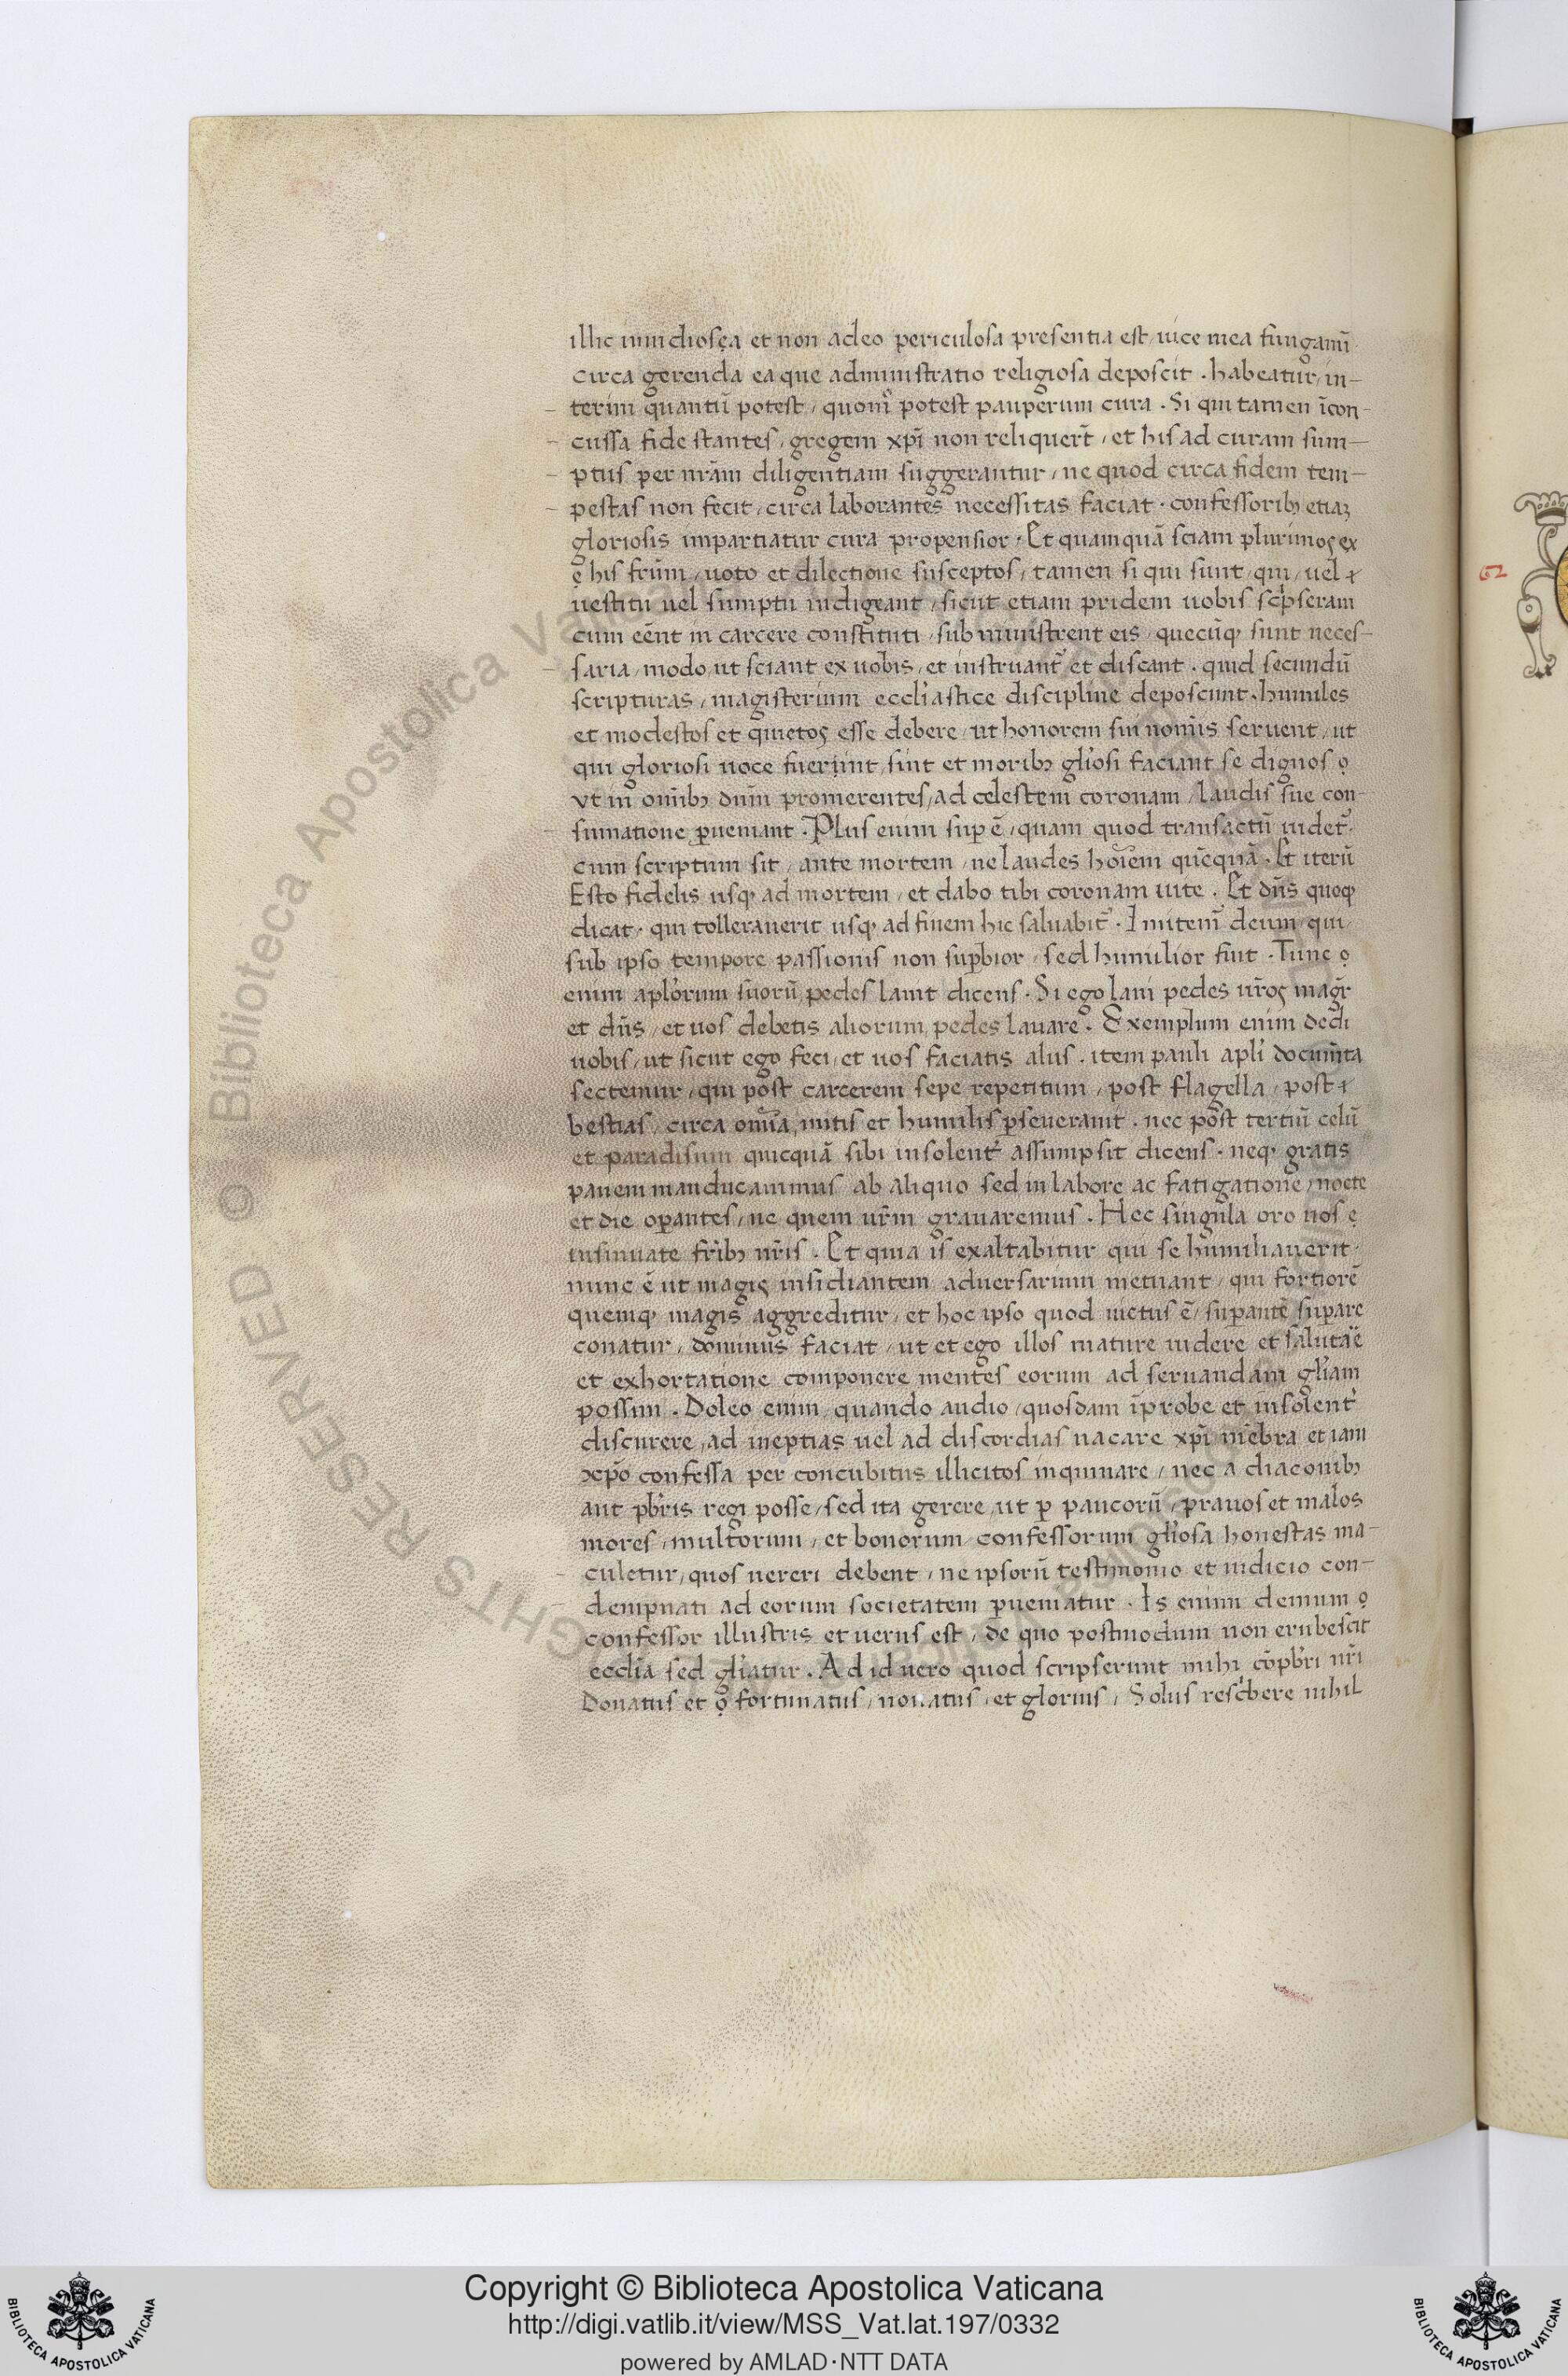 illic inuidiosa et non adeo periculosa presentia est, uice mea fungamĩ
circa gerenda ea que administratio religiosa deposcit . habeatur, in-
terim quantũ potest, quomõ potest pauperum cura . Si qui tamen ĩcon-
cussa fide stantes, gregem xp̃i non reliquert̃, et his ad curam sum-
ptus per nr̃am diligentiam suggerantur, ne quod circa fidem tem-
pestas non fecit, circa laborantes necessitas faciat . confessorib; etiaʒ
gloriosis impartiatur cura propensior . Et quamquã sciam plurimos ex
ẹ his fr̃um, uoto et dilectione susceptos, tamen si qui sunt, qui, uel
uestitu uel sumptu indigeant, sicut etiam pridem uobis scp̃seram
cum eẽnt in carcere constituti, subministrent eis, quecũq; sunt neces-
saria, modo ut sciant ex uobis, et instruant̃ et discant . quid secundũ
scripturas, magisterium eccl̃iastice discipline deposcunt . humiles
et modestos et quietos esse debere, ut honorem sui nom̃is seruent, ut
qui gloriosi uoce fuerint, sint et morib; gl̃iosi faciant se dignos
vt in om̃ib; dñm promerentes, ad celestem coronam, laudis sue con-
sumatione ꝑueniant . Plus enim suꝑ ẽ, quam quod transactũ uidet̃ .
cum scriptum sit, ante mortem, ne laudes hoĩem quẽquã . Et iterũ
Esto fidelis usq; ad mortem, et dabo tibi coronam uite . Et dñs quoq;
dicat . qui tollerauerit usq; ad finem hic saluabit̃ . Imitem̃ deum, qui,
sub ipso tempore passionis non suꝑbior, sed humilior fuit . Tunc
enim apl̃orum suorũ, pedes lauit dicens . Si ego laui pedes ur̃os mag̃r
et dñs, et uos debetis aliorum, pedes lauare . Exemplum enim dedi
uobis, ut sicut ego feci, et uos faciatis alus . item pauli apl̃i docum̃ta
sectemur, qui post carcerem sepe repetitum, post flagella, post
bestias, circa om̃ia, mitis et humilis ꝑseuerauit . nec post tertiũ celũ
et paradisum quicquã sibi insolent̃ assumpsit dicens . neq; gratis
panem manducauimus ab aliquo sed in labore ac fatigatione, nocte
et die oꝑantes, ne quem ur̃m grauaremus . Hec singula oro uos
insinuate fr̃ib; nr̃is . Et quia is exaltabitur qui se humiliauerit .
nunc ẽ ut magis insidiantem aduersarium metuant, qui fortiorẽ
quemq; magis aggreditur, et hoc ipso quod uictus ẽ, suꝑantẽ suꝑare
conatur, dominus faciat, ut et ego illos mature uidere et salutar̃e
et exhortatione componere mentes eorum ad seruandam gl̃iam
possim . Doleo enim, quando audio, quosdam ĩprobe et insolent̃
discurere, ad ineptias uel ad discordias uacare xp̃i mẽbra et iam
xp̃o confessa per concubitus illicitos inquinare, nec a diaconib;
aut pb̃ris regi posse, sed ita gerere, ut ꝑ paucorũ, prauos et malos
mores, multorum, et bonorum, confessorum gl̃iosa honestas ma-
culetur, quos uereri debent, ne ipsorũ testimonio et iudicio con-
dempnati ad eorum societatem ꝑueniatur . Is enim demum
confessor illustris et uerus est, de quo postmodum non erubescit
eccl̃ia sed gl̃iatur . Ad id uero quod scripserunt mihi cõpb̃ri nr̃i
Donatus et fortunatus, nouatus, et glorius, Solus resc̃bere nihil
62
© Biblioteca Apostolica Vaticana
Copyright © Biblioteca Apostolica Vaticana
http://digi.vatlib.it/view/MSS_Vat.lat.197/0332
powered by AMLAD·NTT DATA
BIBLIOTECA APOSTOLICA VATICANA
BIBLIOTECA APOSTOLICA VATICANA